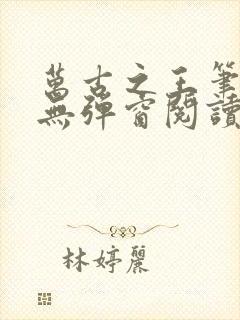 萬古之王筆
無彈窗閱讀
林婷麗